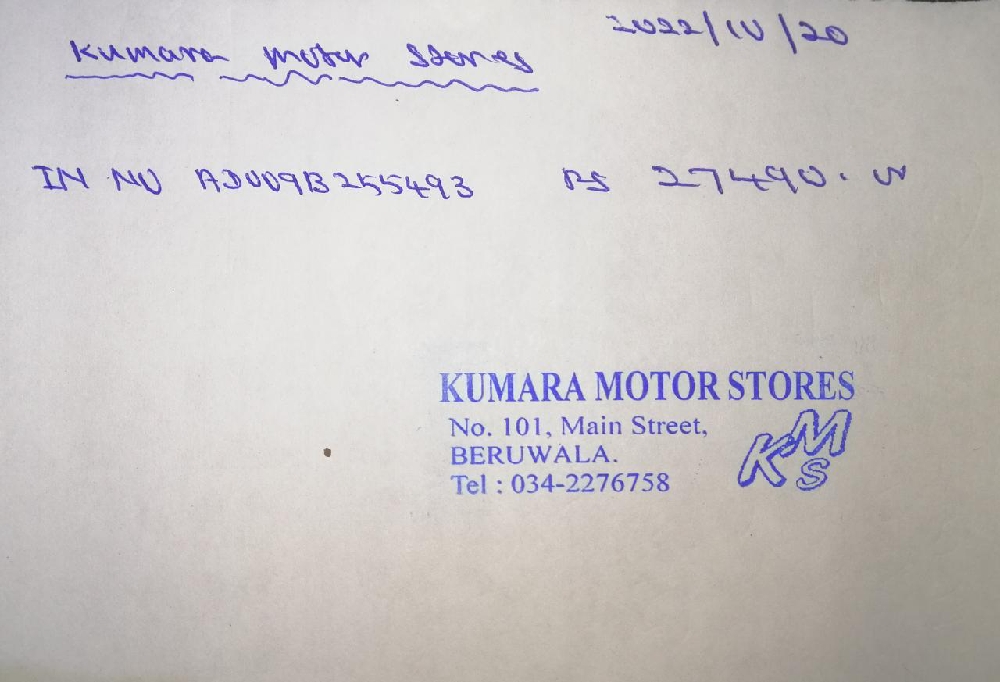 2022/10/20
Kumara motor Stores
IN NO AD009B255493 RS 27490.00
KUMARA MOTOR STORES
No. 101, Main Street,
BERUWALA.
Tel : 034-2276758
KMS